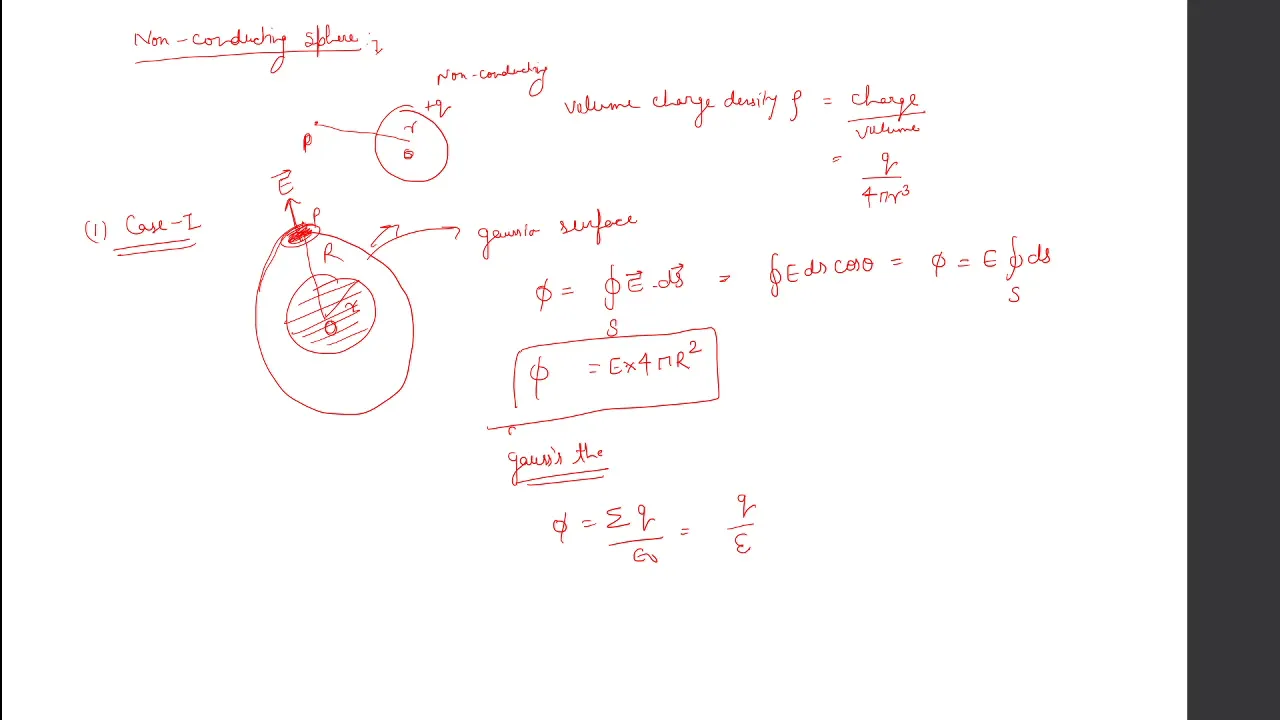 Non-conducting sphere :-
Non-conducting
+q
r
O
P
volume charge density ρ = charge / volume
= q / 4πr³
(1) Case-I
E⃗
P
R
r
O
gaussia surface
ϕ = ∮ E⃗ . ds⃗ = ∮ E ds cosθ = ϕ = E ∮ ds
S S
ϕ = E×4πR²
gauss's the
ϕ = Σq / ε0 = q / ε